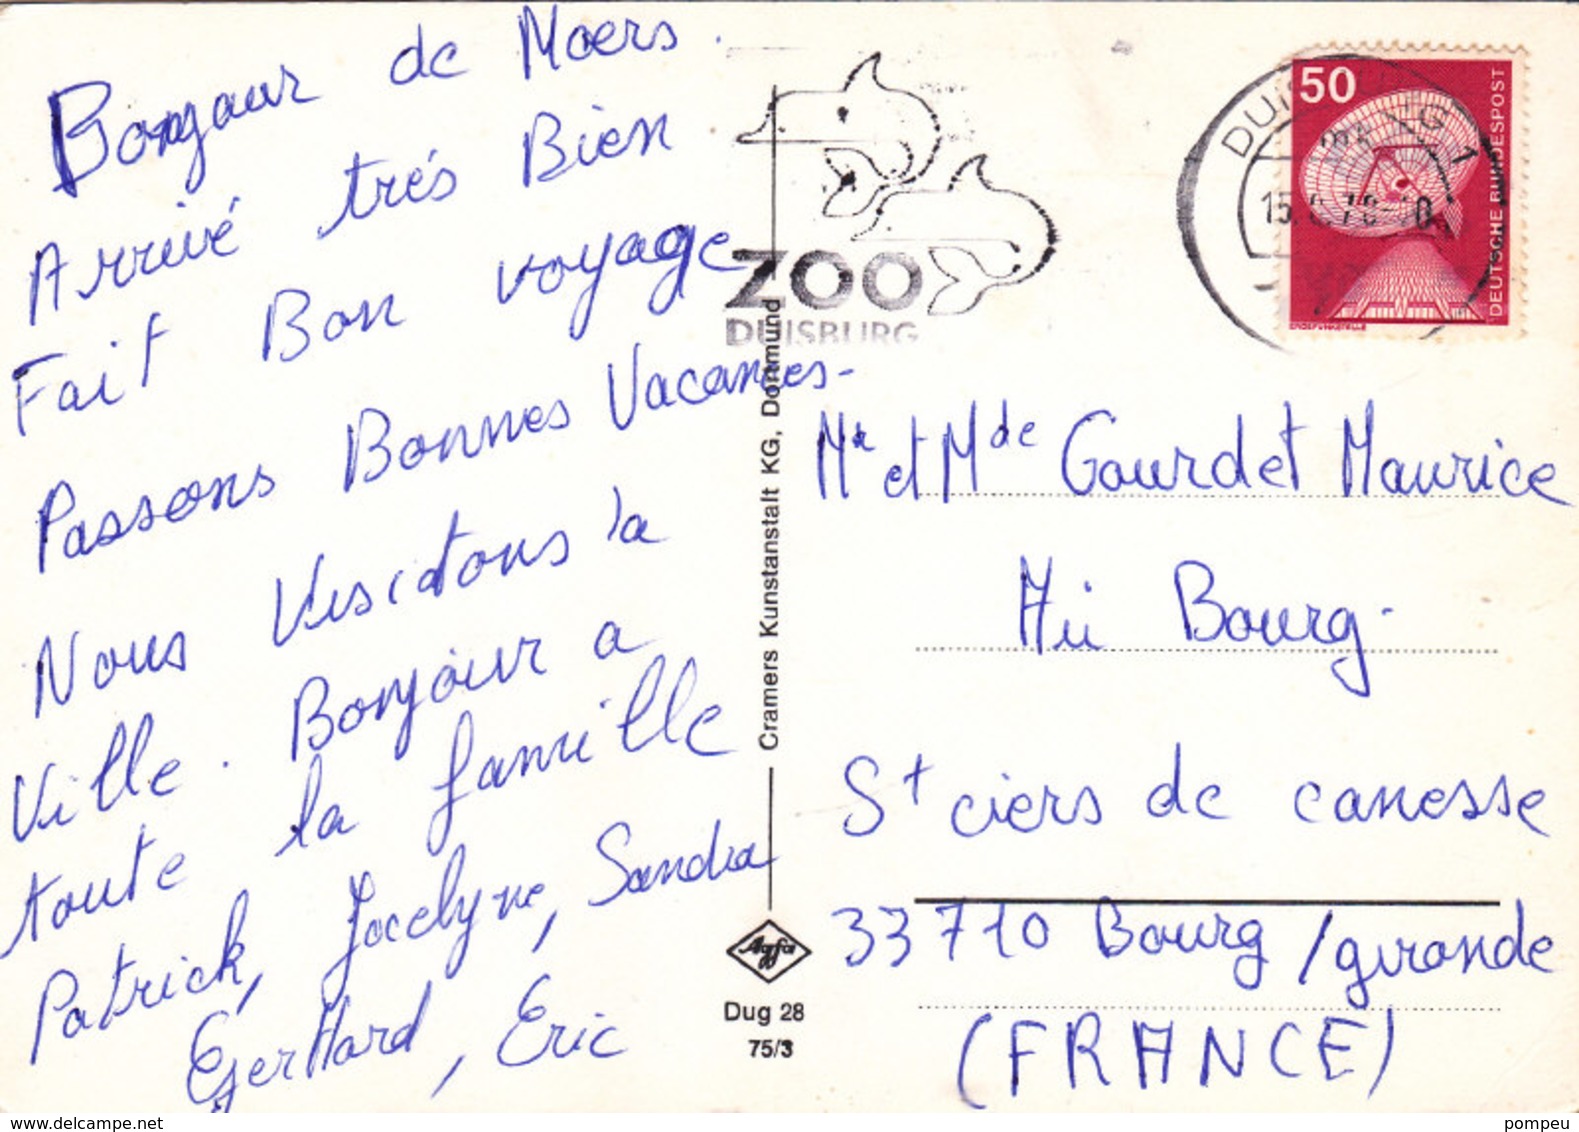 Bonjour de Moers.
Arrivé trés Bien
Fait Bon voyage
Passons Bonnes Vacances-
Nous Visitons la
Ville. Bonjour a
toute la famille
Patrick, Jocelyne, Sandra
Gerhard, Eric
ZOO
DUISBURG
Cramers Kunstanstalt KG, Dortmund
Agfa
Dug 28
75/3
50
DEUTSCHE BUNDESPOST
ERDEFUNKSTELLE
Mr et Mde Gourdet Maurice
Bourg-
St ciers de canesse
33710 Bourg /gironde
(FRANCE)
www.delcampe.net
pompeu